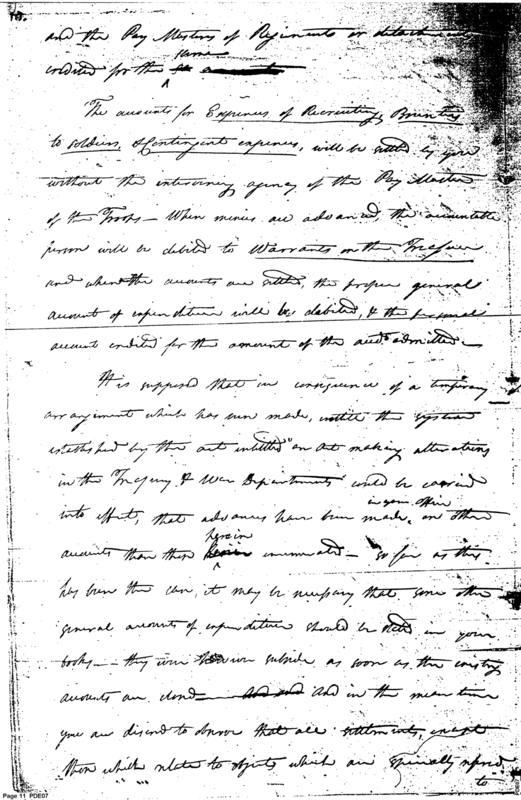 10.
and the Pay Masters of Regiments or detachments
same
credited for the amounts
The accounts for Expences of Recruiting, Bounties
to soldiers, & Contingent expences, will be settled by you
without the intervening agency of the Pay Master
of the Troops — When monies are advanced, the accountable
person will be debited to Warrants on the Treasurer
and when the accounts are settled, the proper general
account of expenditure will be debited, & the personal
account credited for the amount of the accts admitted —
It is supposed that in consequence of a temporary
arrangement which has been made, untill the system
established by the act intitled "an Act making alterations
in the Treasury & War Departments" could be carried
in your office
into effect, that advances have been made, on other
herein
accounts than those enumerated — so far as this
has been the case, it may be necessary that some other
general accounts of expenditure should be stated in your
books — they will however subside as soon as the existing
accounts are closed — and in the mean time
you are discord to observe that all settlements, except
those which relate to objects which are specially referred
to
Page 11 PDE07